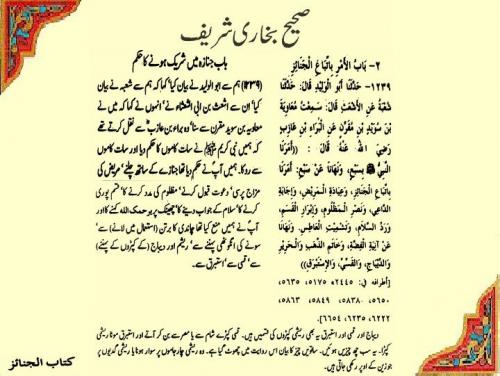 صحیح بخاری شریف
٢- بَابُ الْأَمْرِ بِاتِّبَاعِ الْجَنَائِزِ
١٢٣٩- حَدَّثَنَا أَبُو الْوَلِيدِ قَالَ: حَدَّثَنَا
شُعْبَةُ عَنِ الْأَشْعَثِ قَالَ: سَمِعْتُ مُعَاوِيَةَ
بْنَ سُوَيْدِ بْنِ مُقَرِّنٍ عَنِ الْبَرَاءِ بْنِ عَازِبٍ
رَضِيَ اللهُ عَنْهُ قَالَ: ((أَمَرَنَا
النَّبِيُّ ﷺ بِسَبْعٍ، وَنَهَانَا عَنْ سَبْعٍ: أَمَرَنَا
بِاتِّبَاعِ الْجَنَائِزِ، وَعِيَادَةِ الْمَرِيضِ، وَإِجَابَةِ
الدَّاعِي، وَنَصْرِ الْمَظْلُومِ، وَإِبْرَارِ الْقَسَمِ،
وَرَدِّ السَّلَامِ، وَتَشْمِيتِ الْعَاطِسِ. وَنَهَانَا
عَنْ آنِيَةِ الْفِضَّةِ، وَخَاتَمِ الذَّهَبِ، وَالْحَرِيرِ
وَالدِّيبَاجِ، وَالْقَسِّيِّ، وَالْإِسْتَبْرَقِ)).
[أطرافه في: ٢٤٤٥، ٥١٧٥، ٥٦٣٥،
٥٦٥٠، ٥٨٣٨، ٥٨٤٩، ٥٨٦٣،
٦٢٢٢، ٦٢٣٥، ٦٦٥٤].
باب جنازہ میں شریک ہونے کا حکم
(۱۲۳۹) ہم سے ابو الولید نے بیان کیا، کہا کہ ہم سے شعبہ نے بیان
کیا، ان سے اشعث بن ابی الشعثاء نے، انہوں نے کہا کہ میں نے
معاویہ بن سوید مقرن سے سنا، وہ براء بن عازب سے نقل کرتے تھے
کہ ہمیں نبی کریم ﷺ نے سات کاموں کا حکم دیا اور سات کاموں
سے روکا۔ ہمیں آپ نے حکم دیا تھا جنازے کے ساتھ چلنے، مریض کی
مزاج پرسی، دعوت قبول کرنے، مظلوم کی مدد کرنے کا، قسم پوری
کرنے کا، سلام کے جواب دینے کا، چھینک پر یرحمک اللہ کہنے کا اور
آپ نے ہمیں منع کیا تھا چاندی کا برتن (استعمال میں لانے) سے،
سونے کی انگوٹھی پہننے سے، ریشم اور دیباج (کے کپڑوں کے پہننے)
سے، قسی سے، استبرق سے۔
دیباج اور قسی اور استبرق یہ بھی ریشمی کپڑوں کی قسمیں ہیں۔ قسی کپڑے شام سے یا مصر سے بن کر آتے اور استبرق موٹا ریشمی
کپڑا۔ یہ سب چھ چیزیں ہوئیں۔ ساتویں چیز کا بیان اس روایت میں چھوٹ گیا ہے۔ وہ ریشمی چار جاموں پر سوار ہونا یا ریشمی گدیوں پر
جو زین کے اوپر رکھی جاتی ہیں۔
کتاب الجنائز